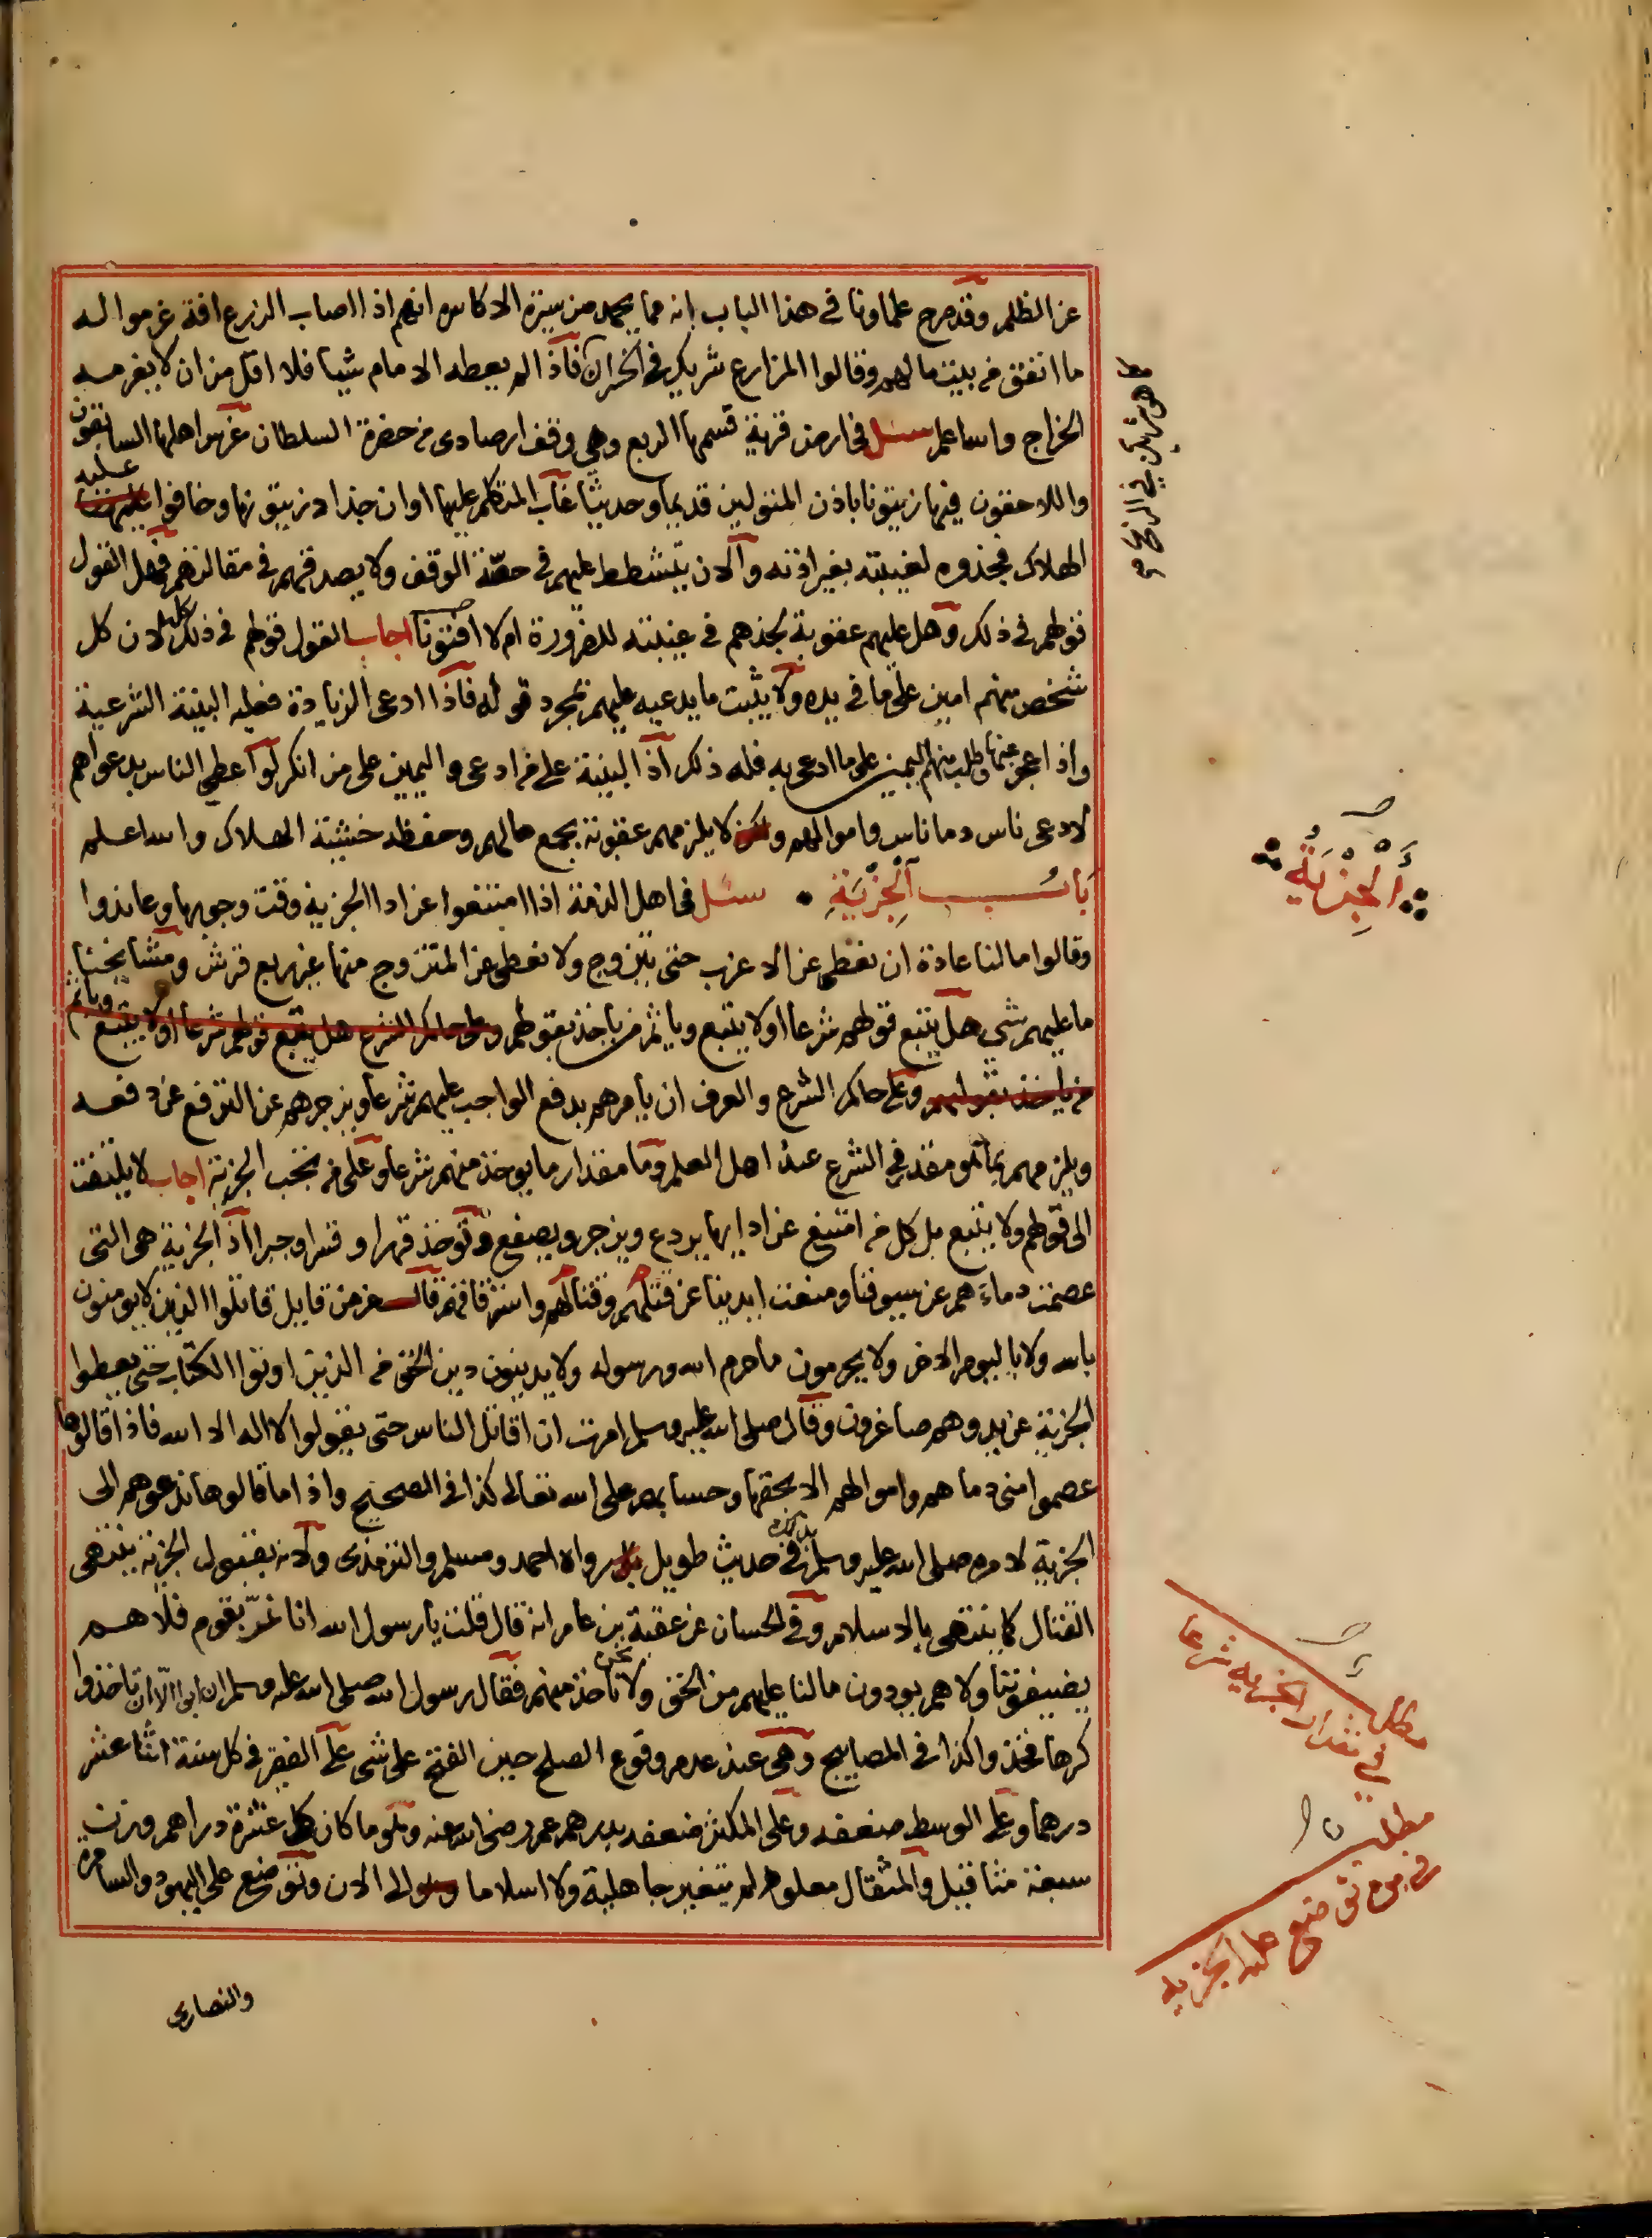 عن الظلم وقد صرح علماونا في هذا الباب انه مما يحمد من سيرة الاكاسره انهم اذا اصاب الزرع افة غرموا له
ما انفق من بيت مالهم وقالوا المزارع شريك في الخسران فاذا لم يعطه الامام شيا فلا اقل من ان لا يغرمه
الخراج والله اعلم سئل في ارض قرية قسمها الربع وهي وقف ارصادي من حضرة السلطان غرس اهلها السابقون
واللاحقون فيها زيتونا باذن المتولين قديما وحديثا غاب المتكلم عليها اوان جذاذ زيتونها وخافوا عليه
الهلاك فجذوه لغيبته بغير اذنه والان يتشطط عليهم في حصة الوقف ولا يصدقهم في مقالتهم فهل القول
قولهم في ذلك وهل عليهم عقوبة بجذهم في غيبته للضرورة ام لا افتونا اجاب القول قولهم في ذلك كله لان كل
شخص منهم امين على ما في يده ولا يثبت ما يدعيه عليهم بمجرد قوله فاذا ادعى الزيادة فعليه البينة الشرعية
واذا عجز عنها وطلب منهم اليمين على ما ادعى به فله ذلك اذ البينة على من ادعى واليمين على من انكر لو اعطي الناس بدعواهم
لادعى ناس دما ناس واموالهم ولكن لا يلزمهم عقوبة بجمع مالهم وحفظه خشية الهلاك والله اعلم
باب الجزية سئل في اهل الذمة اذا امتنعوا عن ادا الجزية وقت وجوبها وعاندوا
وقالوا ما لنا عادة ان نعطي عن الاعزب حتى يتزوج ولا نعطي عن المتزوج منها غير ربع قرش ومشايخنا
ما عليهم شي هل يتبع قولهم شرعا او لا يتبع وياثم من ياخذ بقولهم وعلى حاكم الشرع هل يتبع قولهم شرعا او لا يتبع وياثم
من ياخذ بقولهم وعلى حاكم الشرع والعرف ان يامرهم بدفع الواجب عليهم شرعا ويزجرهم عن الترفع عن دفعه
ويلزمهم بما هو مقدر في الشرع عند اهل العلم وما مقدار ما يوخذ منهم شرعا وعلى من تجب الجزية اجاب لا يلتفت
الى قولهم ولا يتبع بل كل من امتنع عن ادايها يردع ويزجر ويصفع وتوخذ قهرا وقسرا وجبرا اذ الجزية هي التي
عصمت دماءهم عن سيوفنا ومنعت ايدينا عن قتلهم وقتالهم واسترقاقهم قال عز من قايل قاتلوا الذين لا يومنون
بالله ولا باليوم الاخر ولا يحرمون ما حرم الله ورسوله ولا يدينون دين الحق من الذين اوتوا الكتاب حتى يعطوا
الجزية عن يد وهم صاغرون وقال صلى الله عليه وسلم امرت ان اقاتل الناس حتى يقولوا لا اله الا الله فاذا قالوها
عصموا مني دماهم واموالهم الا بحقها وحسابهم على الله تعالى كذا في الصحيح واذا ما قالوها ندعوهم الى
الجزية لامره صلى الله عليه وسلم بذلك في حديث طويل رواه احمد ومسلم والترمذي ولانه بقبول الجزية ينتهي
القتال كما ينتهي بالاسلام وفي الحسان عن عقبة بن عامر انه قال قلت يا رسول الله انا نمر بقوم فلا هم
يضيفوننا ولا هم يودون ما لنا عليهم من الحق ولا نحن ناخذ منهم فقال رسول الله صلى الله عليه وسلم ان ابوا الا ان تاخذوا
كرها فخذوا كذا في المصابيح وهي عند عدم وقوع الصلح حين الفتح على شي على الفقير في كل سنة اثنا عشر
درهما وعلى الوسط ضعفه وعلى المكثر ضعفه بدرهم عمر رضي الله عنه وهو ما كان كل عشرة دراهم وزن
سبعة مثاقيل والمثقال معلوم لم يتغير جاهلية ولا اسلاما الى الان وتوضع على اليهود والسامرة
والنصارى
الجزية
مطلب
في مقدار الجزيه شرعا
مطلب
في من توضع عليه الجزيه